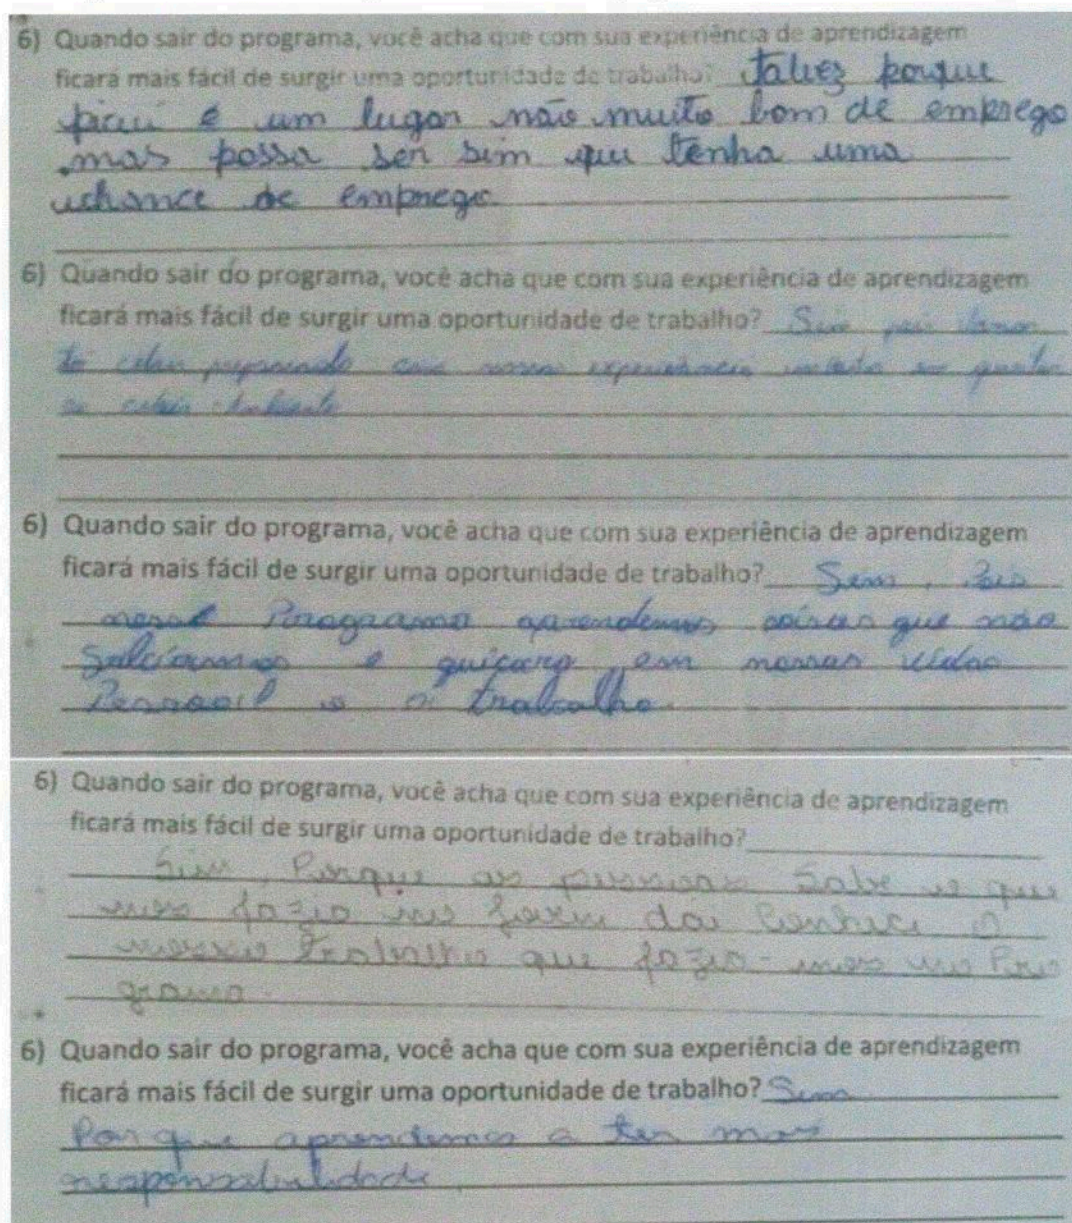 6) Quando sair do programa, você acha que com sua experiência de aprendizagem
ficará mais fácil de surgir uma oportunidade de trabalho? Talvez porque
é um lugar não muito bom de emprego
mas possa ser sim que tenha uma
chance de emprego
6) Quando sair do programa, você acha que com sua experiência de aprendizagem
ficará mais fácil de surgir uma oportunidade de trabalho? Sim pois
com nossa
6) Quando sair do programa, você acha que com sua experiência de aprendizagem
ficará mais fácil de surgir uma oportunidade de trabalho? Sem, Pois
nesse Programa aprendemos coisas que não
Sabiamos e em nossas vidas
trabalho.
6) Quando sair do programa, você acha que com sua experiência de aprendizagem
ficará mais fácil de surgir uma oportunidade de trabalho?
Sim, Porque as pessoas Sabe o que
nos
trabalho que no Pro
grama.
6) Quando sair do programa, você acha que com sua experiência de aprendizagem
ficará mais fácil de surgir uma oportunidade de trabalho? Sim
Porque aprendemos a ter mas
responsabilidade